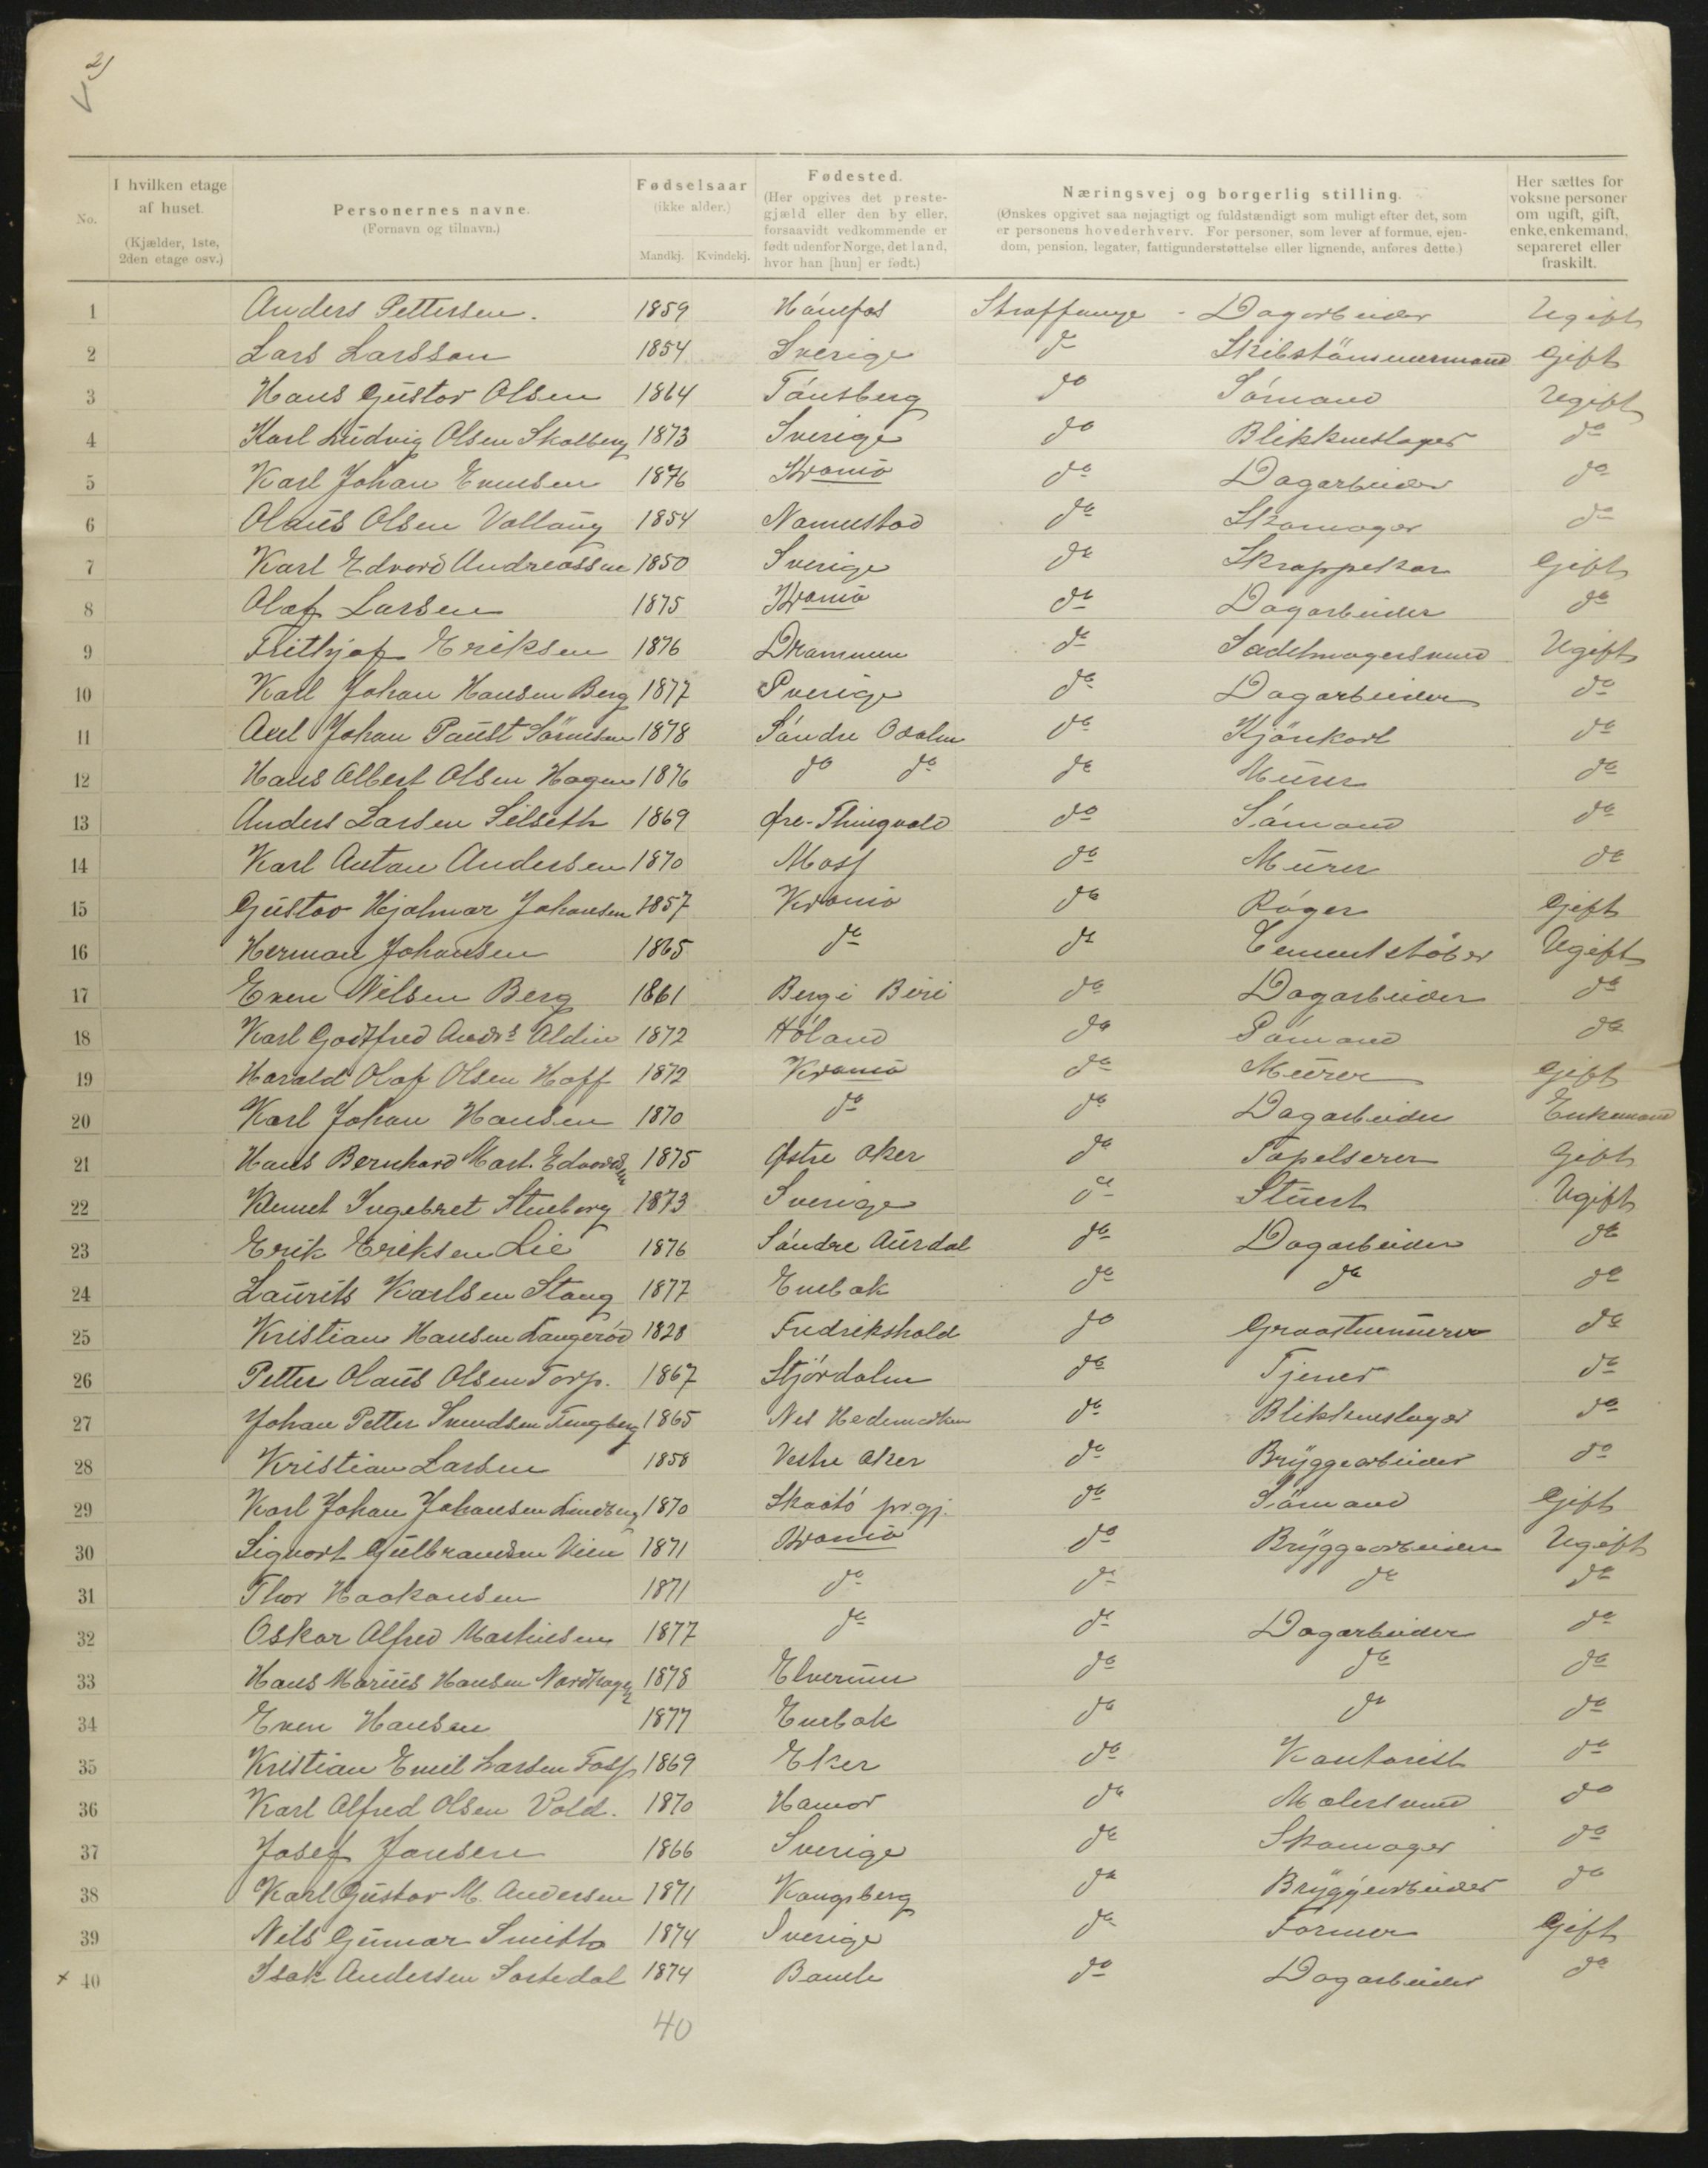 2)
No.
I hvilken etage
af huset.
(Kjælder, 1ste,
2den etage osv.)
Personernes navne.
(Fornavn og tilnavn.)
Fødselsaar
(ikke alder.)
Mandkj. Kvindekj.
Fødested.
(Her opgives det preste-
gjæld eller den by eller,
forsaavidt vedkommende er
født udenfor Norge, det land,
hvor han [hun] er født.)
Næringsvej og borgerlig stilling.
(Ønskes opgivet saa nøjagtigt og fuldstændigt som muligt efter det, som
er personens hovederhverv. For personer, som lever af formue, ejen-
dom, pension, legater, fattigunderstøttelse eller lignende, anføres dette.)
Her sættes for
voksne personer
om ugift, gift,
enke, enkemand,
separeret eller
fraskilt.
1 Anders Pettersen. 1859 Hónefos Straffange - Dagarbeider Ugift
2 Lars Larsson 1854 Sverige do Skibstömmermand Gift
3 Hans Gustav Olsen 1864 Tónsberg do Sómand Ugift
4 Karl Ludvig Olsen Skalberg 1873 Sverige do Blikkenslager do
5 Karl Johan Evensen 1876 Kr.ania do Dagarbeider do
6 Olaus Olsen Vollaug 1854 Namsstad do Skomager do
7 Karl Edvard Andreassen 1850 Sverige do Skrappekar Gift
8 Olaf Larsen 1875 Kr.ania do Dagarbeider do
9 Frithjof Eriksen 1876 Drammen do Sadelmagersvend Ugift
10 Karl Johan Hansen Berg 1877 Sverige do Dagarbeider do
11 Axel Johan Paust Sörensen 1878 Sóndre Odalen do Kjörekarl do
12 Hans Albert Olsen Hagen 1876 do do do Murer do
13 Anders Larsen Silseth 1869 Øre-Thingvold do Sómand do
14 Karl Anton Andersen 1870 Moss do Murer do
15 Gustav Hjalmar Johansen 1857 Kr.ania do Róger Gift
16 Herman Johansen 1865 do do Cementstöber Ugift
17 Even Nilsen Berg 1861 Berg i Biri do Dagarbeider do
18 Karl Godtfred Andrs Aldin 1872 Hóland do Sómand do
19 Harald Olaf Olsen Hoff 1872 Kr.ania do Murer Gift
20 Karl Johan Hansen 1870 do do Dagarbeider Enkemand
21 Hans Bernhard Mart. Edvardsen 1875 Østre Aker do Tapetserer Gift
22 Ingebret 1873 Sverige do Stuert Ugift
23 Erik Eriksen Lie 1876 Sóndre Aurdal do Dagarbeider do
24 Laurits Karlsen Stang 1877 Enebak do do do
25 Kristian Hansen Langeröd 1828 Fredrikshald do Graastensmurer do
26 Petter Olaus Olsen Torp. 1867 Stjórdalen do Tjener do
27 Johan Petter Svendsen 1865 Nes Hedemarken do Blikkenslager do
28 Kristian Larsen 1858 Vestre Aker do Bryggearbeider do
29 Karl Johan Johansen Lindberg 1870 Skaató pr.gj. do Sömand Gift
30 Sigvart Gulbrandsen Vien 1871 Kr.ania do Bryggearbeider Ugift
31 Thor Haakonsen 1871 do do do do
32 Oskar Alfred Mathisen 1877 do do Dagarbeider do
33 Hans Marius Hansen Nordhagen 1878 Elverum do do do
34 Even Hansen 1877 Enebak do do do
35 Kristian Emil Larsen 1869 Eker do Kontorist do
36 Karl Alfred Olsen Vold. 1870 Hamar do Malersvend do
37 Josef Jansen 1866 Sverige do Skomager do
38 Karl Gustav M. Andersen 1871 Kongsberg do Bryggearbeider do
39 Nils Gunnar Smith 1874 Sverige do Former Gift
x 40 Isak Andersen Sortedal 1874 Bamle do Dagarbeider do
40